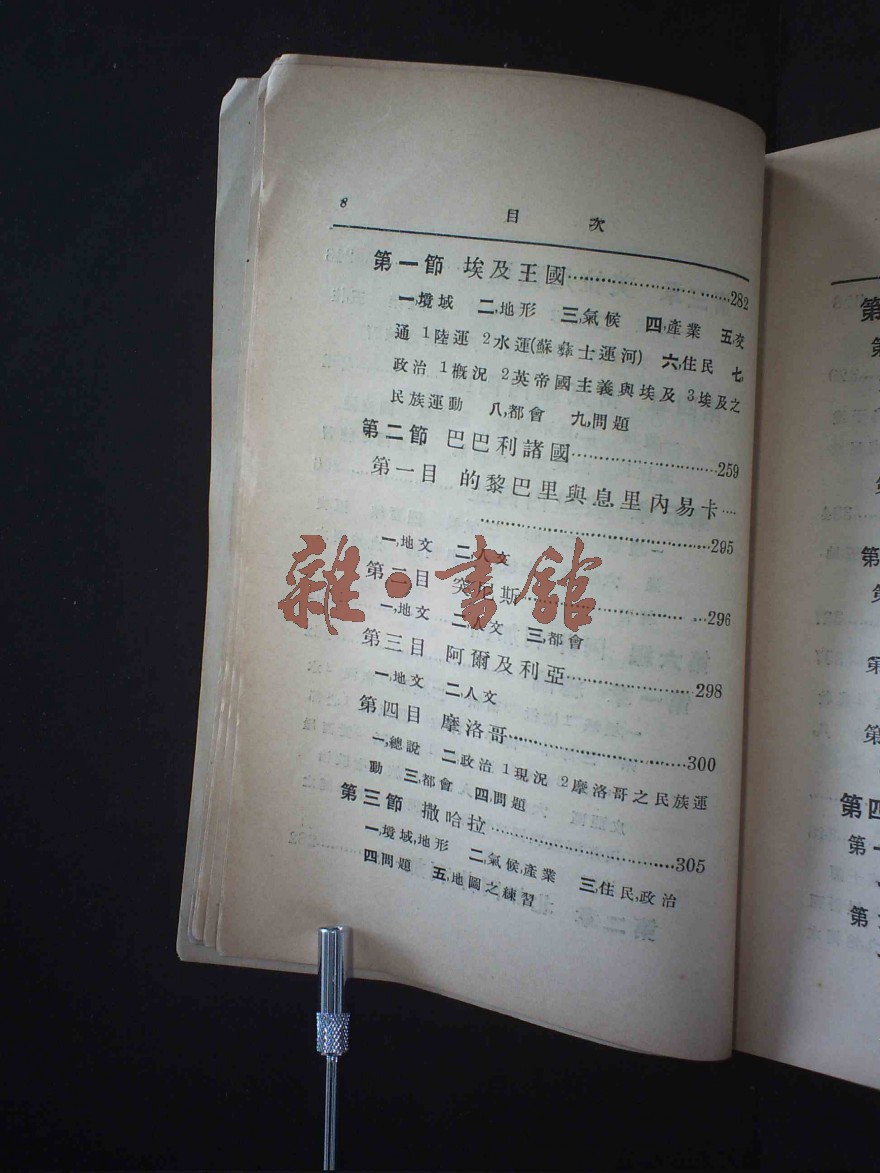 8 目 次
第一節 埃及王國……………………282
一,境域 二,地形 三,氣候 四,產業 五,交
通 1陸運 2水運(蘇彝士運河) 六,住民 七,
政治 1概況 2英帝國主義與埃及 3埃及之
民族運動 八,都會 九,問題
第二節 巴巴利諸國……………………259
第一目 的黎巴里與息里內易卡……
……………………295
一,地文 二,人文
第二目 突尼斯……………………296
一,地文 二,人文 三,都會
第三目 阿爾及利亞……………………298
一,地文 二,人文
第四目 摩洛哥……………………300
一,總說 二,政治 1現況 2摩洛哥之民族運
動 三,都會 四,問題
第三節 撒哈拉……………………305
一,境域,地形 二,氣候,產業 三,住民,政治
四,問題 五,地圖之練習
雜·書館
第
第
第
第
第
第
第
第四
第一
第